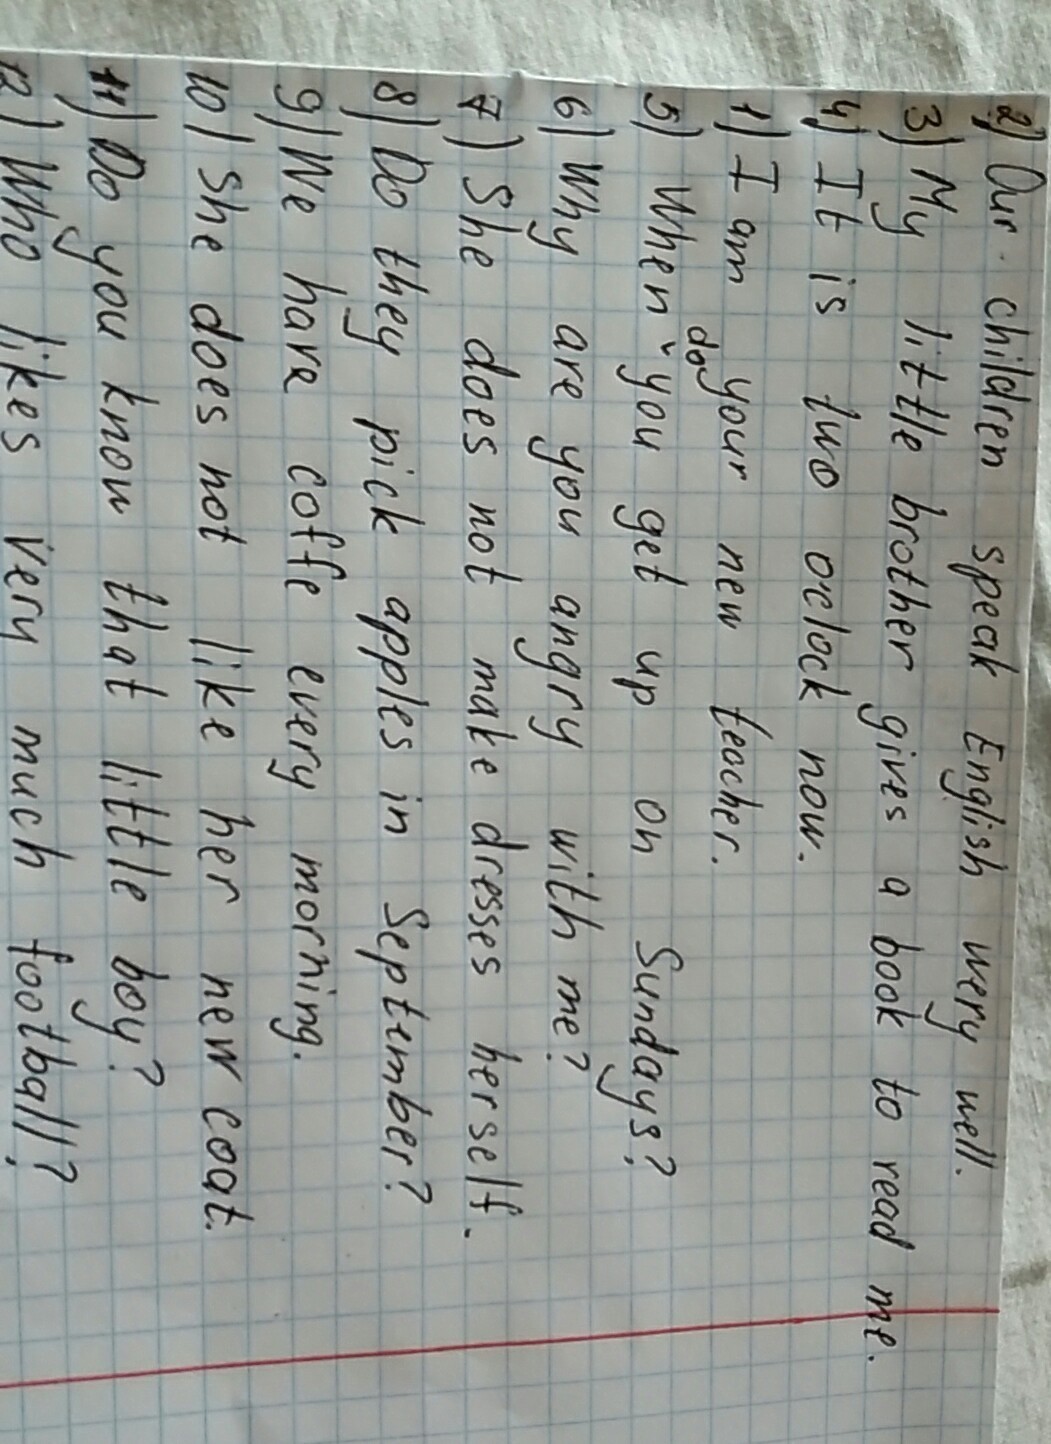 2) Our children speak English wery well.
3) My little brother gives a book to read me.
4) It is two oclock now.
1) I am your new teacher.
do
5) When you get up on Sundays?
6) Why are you angry with me?
7) She does not make dresses herself.
8) Do they pick apples in September?
9) We have coffe every morning.
10) She does not like her new coat.
11) Do you know that little boy?
12) Who likes very much football?